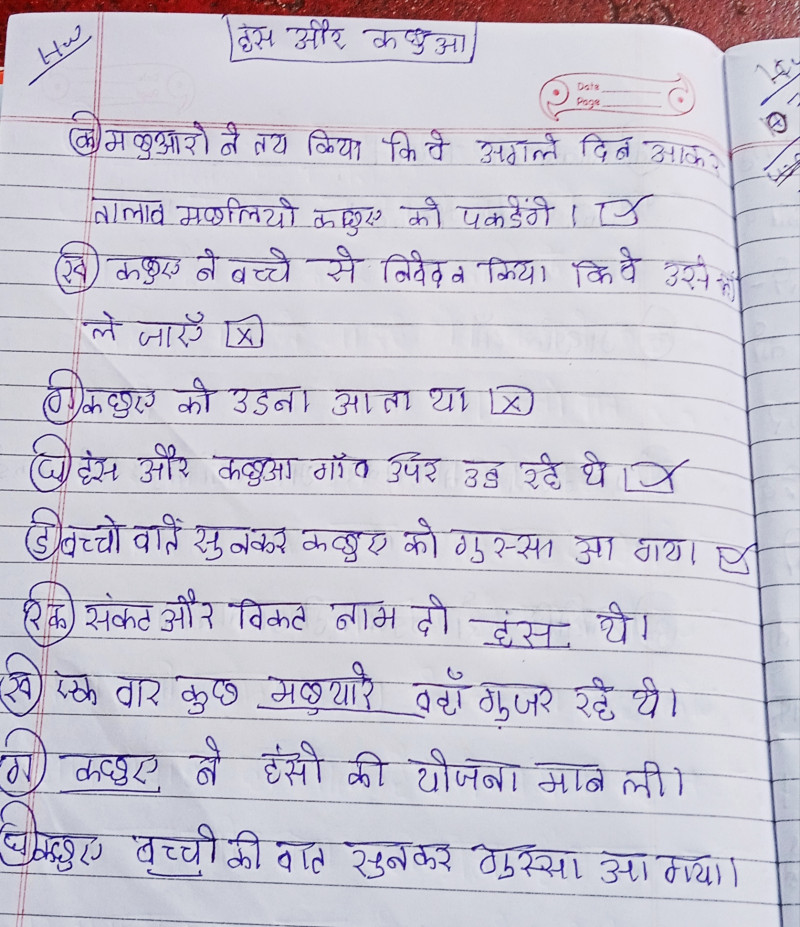 H.W
हंस और कछुआ
Date
Page
(क) मछुआरो ने तय किया कि वे अगले दिन आकर
तालाव मछलियो कछुए को पकडेंगे । ☑
(ख) कछुए ने बच्चे से निवेदन किया कि वे उसे भी
ले जाएँ ☒
(ग) कछुए को उडना आता था ☒
(घ) हंस और कछुआ गाँव उपर उड रहे थे । ☑
(ड) बच्चो वातें सुनकर कछुए को गुस्सा आ गया ☑
२ (क) संकट और विकट नाम दो हंस थे।
(ख) एक वार कुछ मछुयारे वहाँ गुजर रहे थे।
(ग) कछुए ने हंसो की योजना मान ली।
(घ) कछुए बच्चो की वात सुनकर गुस्सा आ गया।